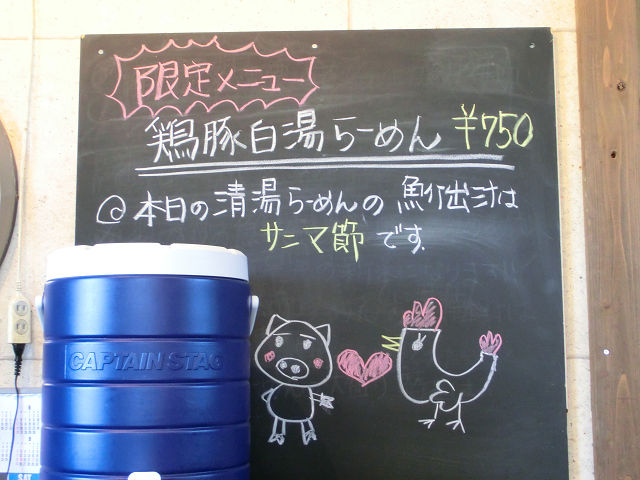 限定メニュー
鶏豚白湯らーめん ¥750
◎本日の清湯らーめんの魚介出汁は
サンマ節です.
CAPTAIN STAG
SAT